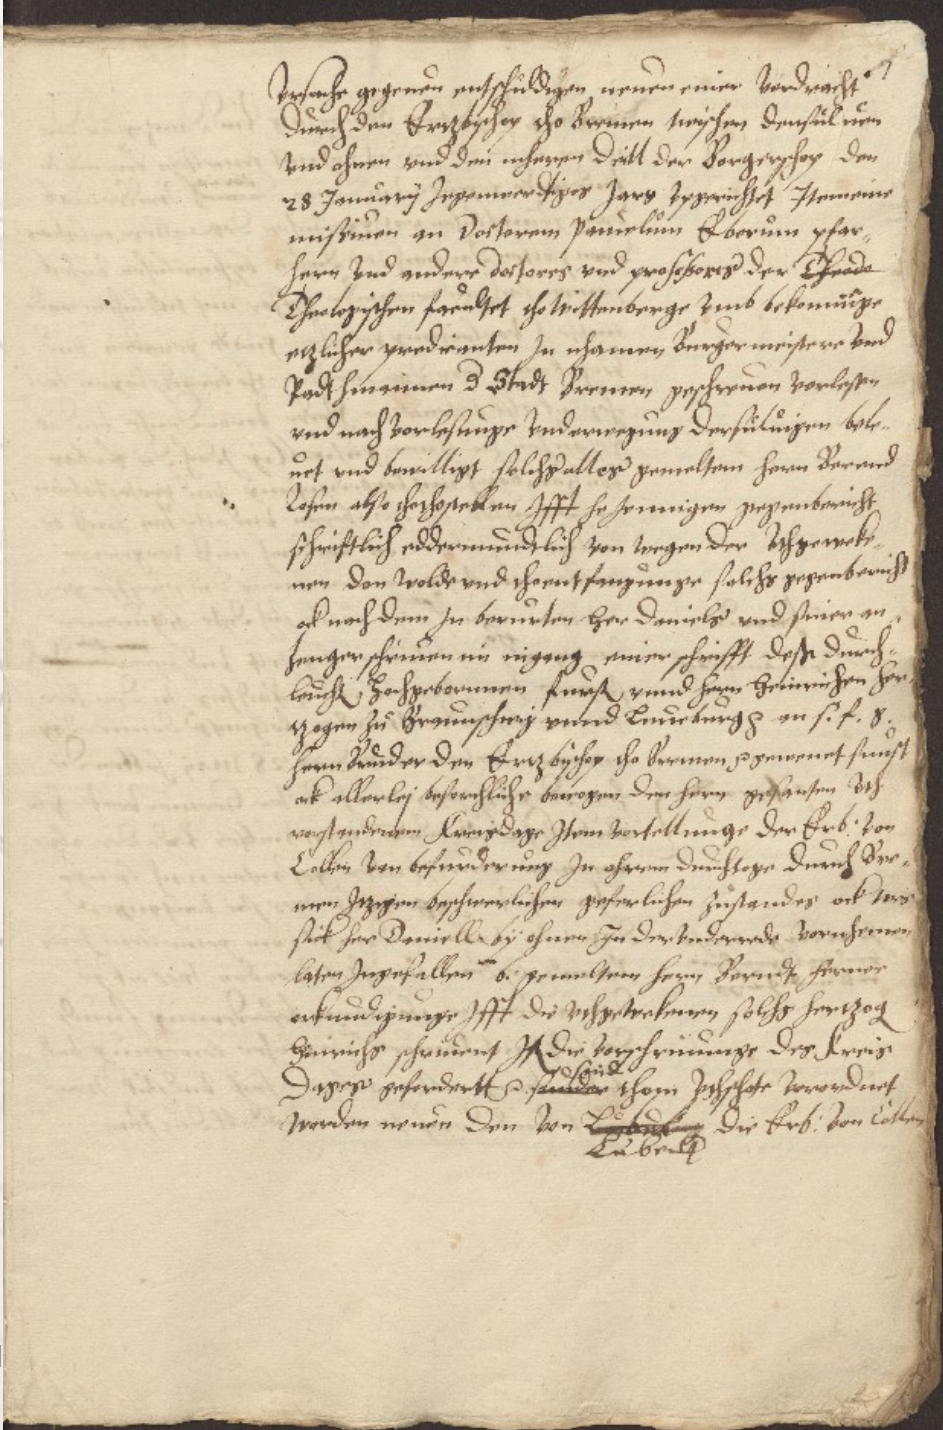 Vrsache gegeuen entschuldigen neuen einer Vordracht
durch den Ertzbischop tho Bremen twischen densuluen
vnd ohnen vnd den meheren deill der Borgerschop den
28 January Jegenwerdiges Jars vpgerichtet Item eine
missiuen an Doctorem Pauelum Eberum pfar„
hern vnd andere doctores vnd professores der Theodo
Theologischen facultet tho Wittenberge vmb bekominge
etzlicher predicanten In nhamen Burgermeistere vnd
Radtmannen d Stadt Bremen geschreuen vorlesen
vnd nach vorlesunge vnd erwegung dersuluigen bele„
uet vnd bewilligt solchs alles gemeltem hern Berend
Losen also tho thostellen Ifft he jennigen gegenbericht
schrifftlich edder mundtlich von wegen der vthgeweke„
nen don wolde vnd tho entfangunge solchs gegenberichts
ock nach dem In berurten her Daniels vnd siner an„
henger schriuen im ingang einer schrifft des durch„
leucht. Hochgebornnen furst. vnnd hern Heinrichen her„
tzogen zu Braunschwig vnnd Luneburg an s. f. g.
hern Bruder den Ertzbischop tho Bremen gewenet sunst
ock allerlej beforchliche bewegen den hern gesanten vth
vorstandenem Kreisdage Item vortellunge der Erb: von
Collen von befurderung In ohrem durchtoge durch Bre„
men Itzigen beschwerlichen geferlichen zustandes ock wes
sick her Daniell by ohnen In der vnderrede vornhemen
laten Ingefallen b: gemeltem hern Berndt ferner
erkundigunge Ifft die vthgewekenen solchs hertzog
Heinrichs schriuent Ist die vorschriuunge des Kreis
Dages gefordertt so sind sunder thom vthschote verordnet
worden neuen den von Lubeck die Erb: von Collen
Lubeck